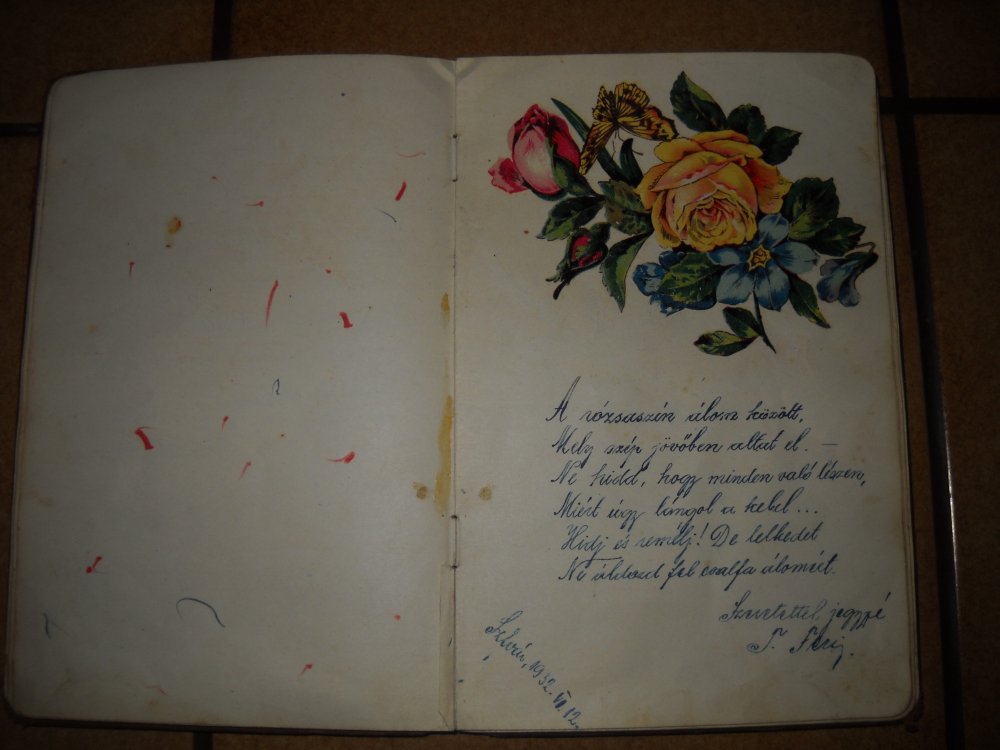 A rózsaszín álom között,
Mely szép jövőben altat el. —
Ne hidd, hogy minden való lészen,
Miért úgy lángol a kebel...
Hidj és remélj! De lelkedet
Ne áldozd fel csalfa álomért.
Szeretettel jegyzé
T. Feri.
1932. VI. 12.